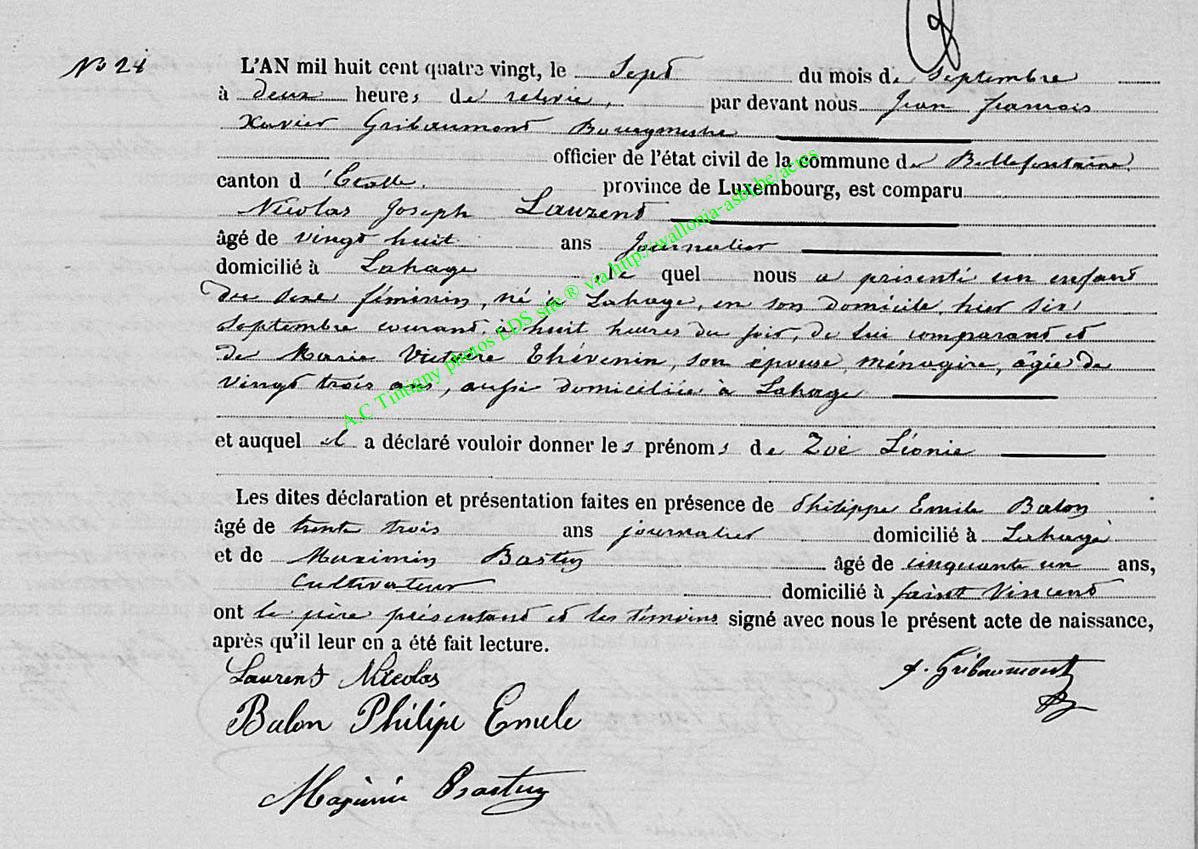 No 28
L'AN mil huit cent quatre vingt, le sept du mois de Septembre
à deux heures de relevée, par devant nous Jean François
Xavier Gribaumont Bourgmestre
officier de l'état civil de la commune de Bellefontaine,
canton d'Etalle, province de Luxembourg, est comparu
Nicolas Joseph Laurent
âgé de vingt huit ans journalier
domicilié à Lahage, le quel nous a présenté un enfant
du sexe féminin, né à Lahage, en son domicile, hier six
septembre courant, à huit heures du soir, de lui comparant et
de Marie Victoire Thévenin, son épouse, ménagère, âgée de
vingt trois ans, aussi domiciliée à Lahage
et auquel il a déclaré vouloir donner les prénoms de Zoé Léonie
Les dites déclaration et présentation faites en présence de Philippe Emile Balon
âgé de trente trois ans journalier domicilié à Lahage
et de Maximin Bastin âgé de cinquante un ans,
Cultivateur domicilié à Saint Vincent
ont le père présentant et les témoins signé avec nous le présent acte de naissance,
après qu'il leur en a été fait lecture.
Laurent Nicolas
Gribaumont
Balon Philipe Emile
Bastin
A.C Tintigny photos LDS site ® via http://wallonia-asbl.be/actes